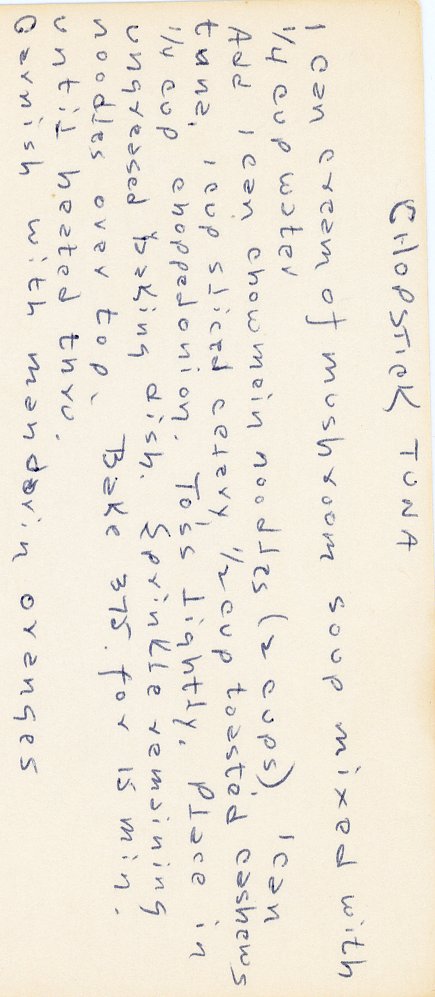 CHOPSTICK TUNA
1 can cream of mushroom soup mixed with
1/4 cup water
Add 1 can chowmein noodles (2 cups) 1 can
tuna, 1 cup sliced celery, 1/2 cup toasted cashews
1/4 cup chopped onion. Toss lightly. Place in
ungreased baking dish. Sprinkle remaining
noodles over top. Bake 375 for 15 min.
until heated thru.
Garnish with mandarin oranges